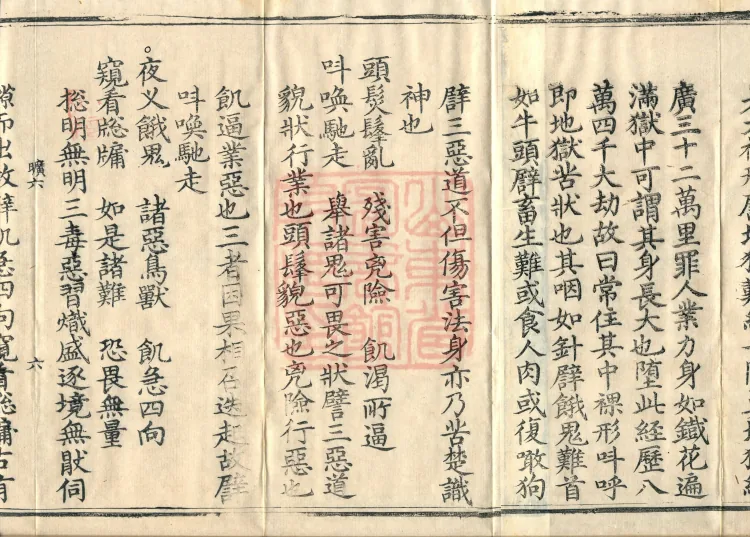 廣三十二萬里罪人業力身如鐵花遍
滿獄中可謂其身長大也墮此經歷八
萬四千大劫故曰常住其中裸形呌呼
即地獄苦狀也其咽如針譬餓鬼難首
如牛頭譬畜生難或食人肉或復噉狗
譬三惡道不但傷害法身亦乃苦楚識
神也
頭髮髼亂　殘害兇險　飢渴所逼
呌喚馳走　舉諸鬼可畏之狀譬三惡道
貌狀行業也頭髼貌惡也兇險行惡也
飢逼業惡也三者因果相召迭起故譬
呌喚馳走
。夜叉餓鬼　諸惡鳥獸　飢急四向
窺看窓牖　如是諸難　恐畏無量
捴明無明三毒惡習熾盛逐境無猒伺
曠六　六
隙而出故譬飢急四向窺看窓牖占有